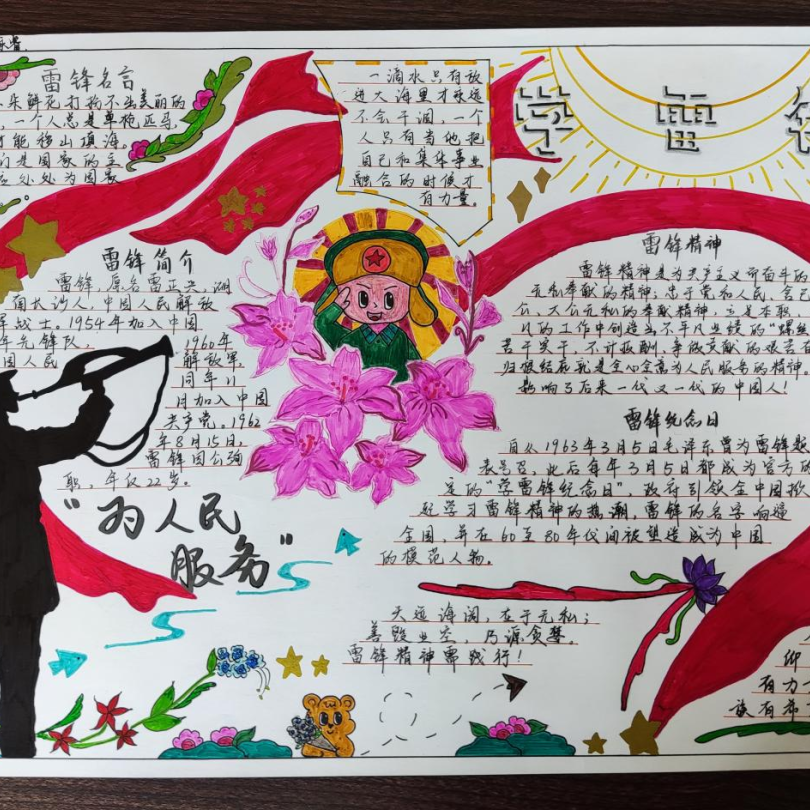 雷锋名言
朵鲜花打扮不出美丽的
一个人总是单枪匹马
才能移山填海。
们是国家的主
应处处为国家
一滴水只有放
进大海里才永远
不会干涸,一个
人只有当他把
自己和集体事业
融合的时候才
有力量。
学雷
雷锋简介
雷锋,原名雷正兴,湖
南长沙人,中国人民解放
军战士。1954年加入中国
年先锋队,
1960年
国人民
解放军
同年11
月加入中国
共产党。1962
年8月15日,
雷锋因公殉
职,年仅22岁。
“为人民
服务”
雷锋精神
雷锋精神是为共产主义而奋斗的
无私奉献的精神;忠于党和人民、舍己
公、大公无私的奉献精神;立足本职、
凡的工作中创造出不平凡业绩的“螺丝
苦干实干、不计报酬、争做贡献的艰苦奋
归根结底就是全心全意为人民服务的精神。
影响了后来一代又一代的中国人!
雷锋纪念日
自从1963年3月5日毛泽东曾为雷锋题
表号召,此后每年3月5日都成为官方的
定的“学雷锋纪念日”,政府引领全中国掀
起学习雷锋精神的热潮,雷锋的名字响遍
全国,并在60至80年代间被塑造成为中国
的模范人物。
天遥海阔,在于无私;
善毁业空,乃源贪婪。
雷锋精神需践行!
仰
有力
族有希